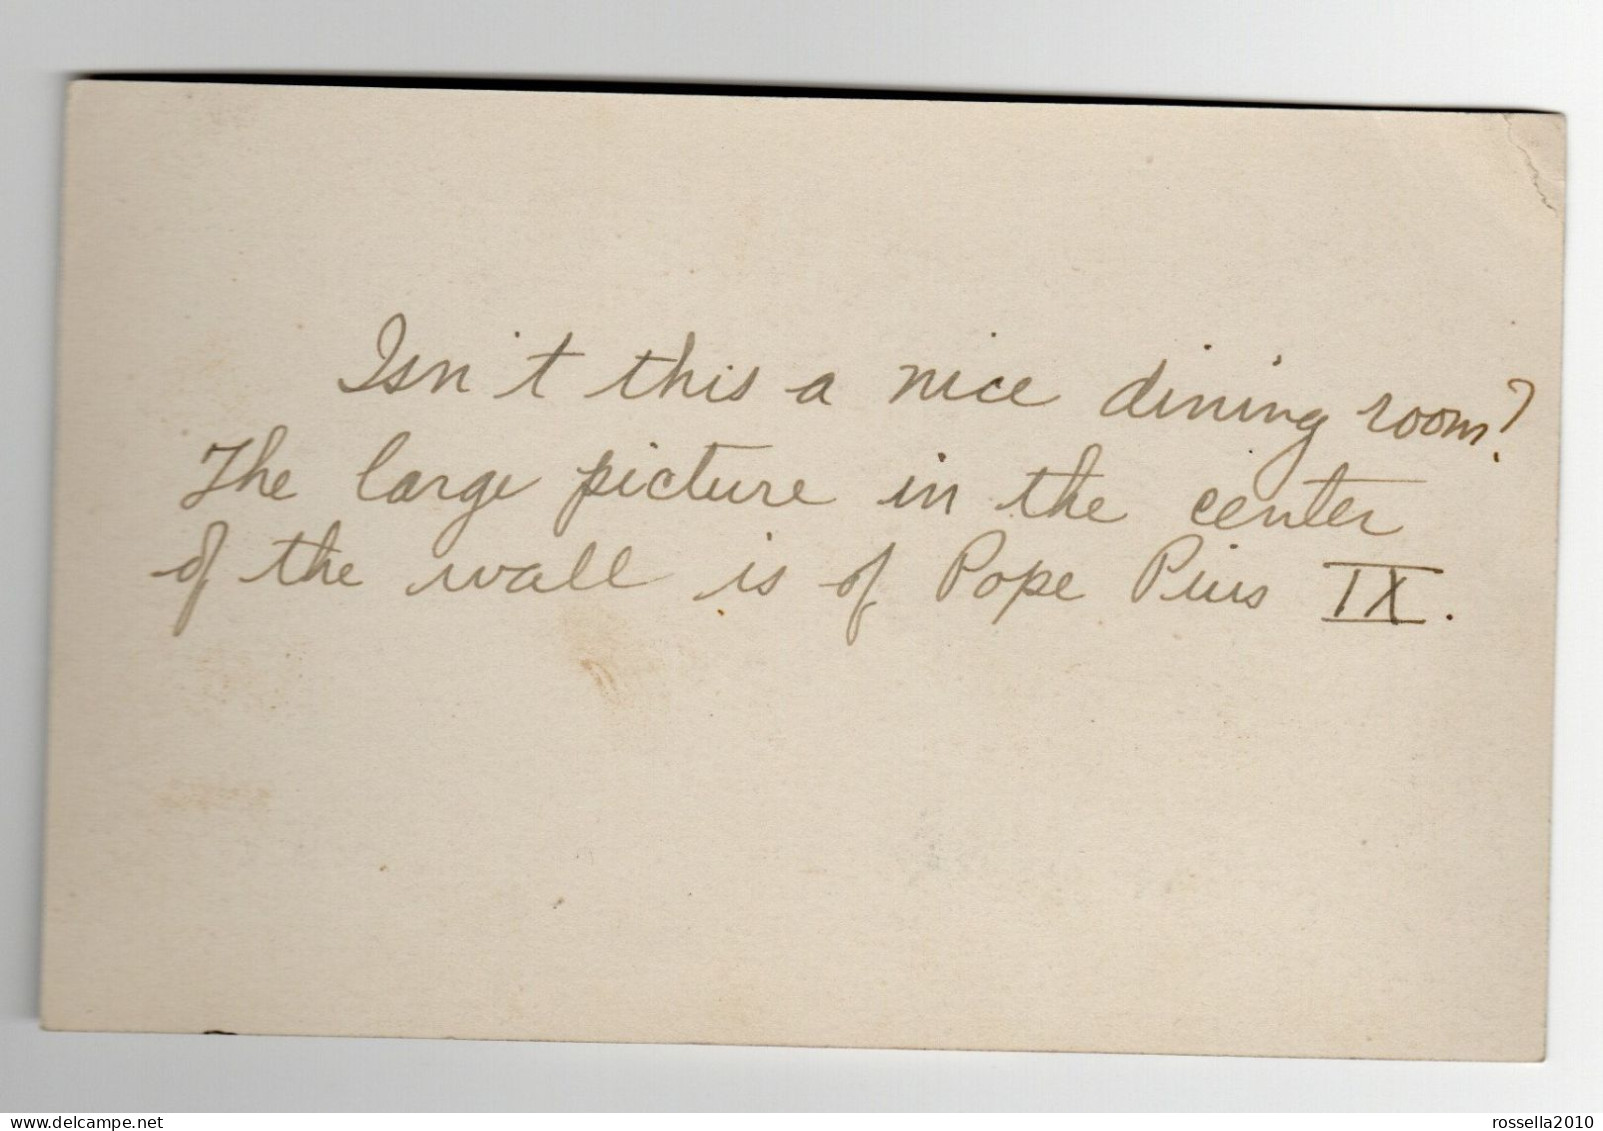 Isn't this a nice dining room?
The large picture in the center
of the wall is of Pope Pius IX.
rossella2010